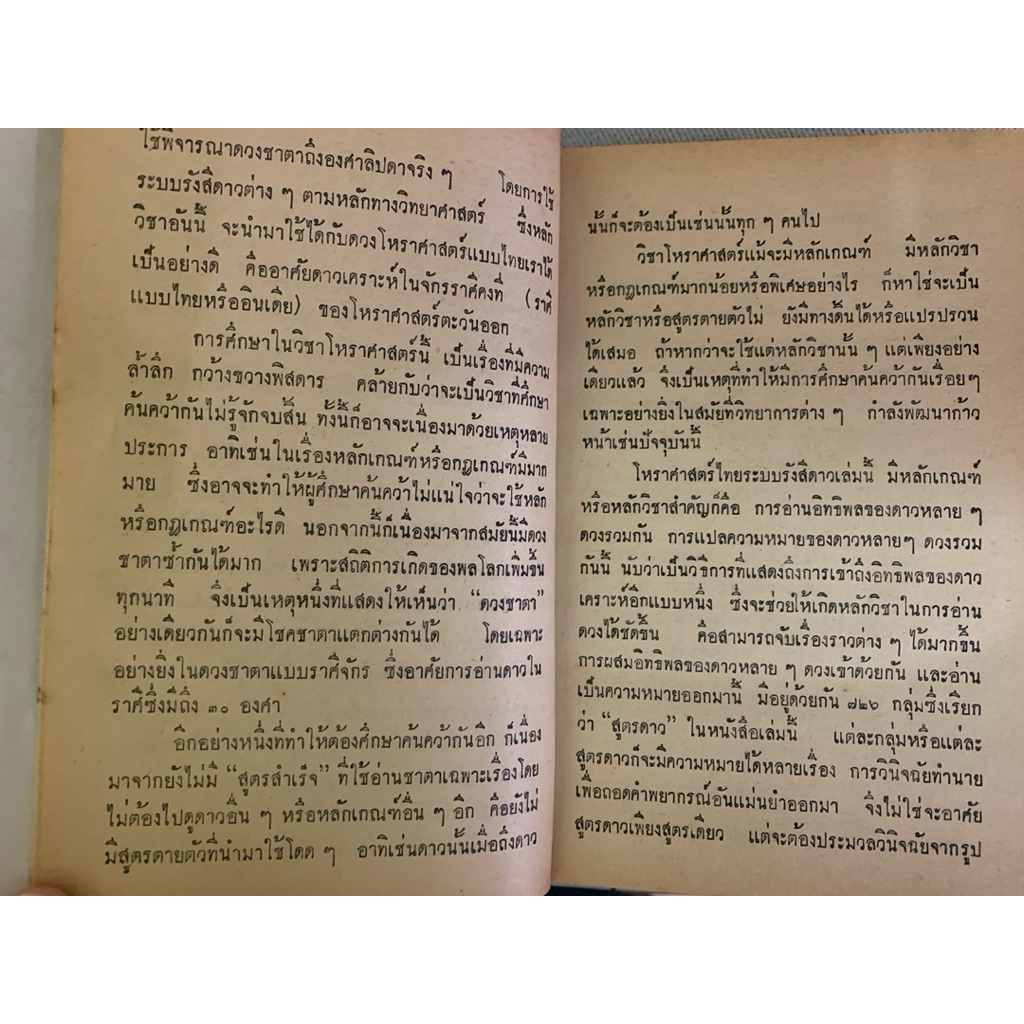 ใช้พิจารณาดวงชาตาถึงองศาลิปดาจริง ๆ โดยการใช้
ระบบรังสีดาวต่าง ๆ ตามหลักทางวิทยาศาสตร์ ซึ่งหลัก
วิชาอันนี้ จะนำมาใช้ได้กับดวงโหราศาสตร์แบบไทยเราได้
เป็นอย่างดี คืออาศัยดาวเคราะห์ในจักรราศีคงที่ (ราศี
แบบไทยหรืออินเดีย) ของโหราศาสตร์ตะวันออก
การศึกษาในวิชาโหราศาสตร์นี้ เป็นเรื่องที่มีความ
ล้ำลึก กว้างขวางพิสดาร คล้ายกับว่าจะเป็นวิชาที่ศึกษา
ค้นคว้ากันไม่รู้จักจบสิ้น ทั้งนี้ก็อาจจะเนื่องมาด้วยเหตุหลาย
ประการ อาทิเช่นในเรื่องหลักเกณฑ์หรือกฎเกณฑ์มีมาก
มาย ซึ่งอาจจะทำให้ผู้ศึกษาค้นคว้าไม่แน่ใจว่าจะใช้หลัก
หรือกฎเกณฑ์อะไรดี นอกจากนี้ก็เนื่องมาจากสมัยนี้มีดวง
ชาตาซ้ำกันได้มาก เพราะสถิติการเกิดของพลโลกเพิ่มขึ้น
ทุกนาที จึงเป็นเหตุหนึ่งที่แสดงให้เห็นว่า “ดวงชาตา”
อย่างเดียวกันก็จะมีโชคชาตาแตกต่างกันได้ โดยเฉพาะ
อย่างยิ่งในดวงชาตาแบบราศีจักร ซึ่งอาศัยการอ่านดาวใน
ราศีซึ่งมีถึง ๓๐ องศา
อีกอย่างหนึ่งที่ทำให้ต้องศึกษาค้นคว้ากันอีก ก็เนื่อง
มาจากยังไม่มี “สูตรสำเร็จ” ที่ใช้อ่านชาตาเฉพาะเรื่องโดย
ไม่ต้องไปดูดาวอื่น ๆ หรือหลักเกณฑ์อื่น ๆ อีก คือยังไม่
มีสูตรตายตัวที่นำมาใช้โดด ๆ อาทิเช่นดาวนั้นเมื่อถึงดาว
นั้นก็จะต้องเป็นเช่นนั้นทุก ๆ คนไป
วิชาโหราศาสตร์แม้จะมีหลักเกณฑ์ มีหลักวิชา
หรือกฎเกณฑ์มากน้อยหรือพิเศษอย่างไร ก็หาใช่จะเป็น
หลักวิชาหรือสูตรตายตัวไม่ ยังมีทางดิ้นได้หรือแปรปรวน
ได้เสมอ ถ้าหากว่าจะใช้แต่หลักวิชานั้น ๆ แต่เพียงอย่าง
เดียวแล้ว จึงเป็นเหตุที่ทำให้มีการศึกษาค้นคว้ากันเรื่อยๆ
เฉพาะอย่างยิ่งในสมัยที่วิทยาการต่าง ๆ กำลังพัฒนาก้าว
หน้าเช่นปัจจุบันนี้
โหราศาสตร์ไทยระบบรังสีดาวเล่มนี้ มีหลักเกณฑ์
หรือหลักวิชาสำคัญก็คือ การอ่านอิทธิพลของดาวหลาย ๆ
ดวงรวมกัน การแปลความหมายของดาวหลายๆ ดวงรวม
กันนี้ นับว่าเป็นวิธีการที่แสดงถึงการเข้าถึงอิทธิพลของดาว
เคราะห์อีกแบบหนึ่ง ซึ่งจะช่วยให้เกิดหลักวิชาในการอ่าน
ดวงได้ชัดขึ้น คือสามารถจับเรื่องราวต่าง ๆ ได้มากขึ้น
การผสมอิทธิพลของดาวหลาย ๆ ดวงเข้าด้วยกัน และอ่าน
เป็นความหมายออกมานี้ มีอยู่ด้วยกัน ๗๒๖ กลุ่มซึ่งเรียก
ว่า “สูตรดาว” ในหนังสือเล่มนี้ แต่ละกลุ่มหรือแต่ละ
สูตรดาวก็จะมีความหมายได้หลายเรื่อง การวินิจฉัยทำนาย
เพื่อถอดคำพยากรณ์อันแม่นยำออกมา จึงไม่ใช่จะอาศัย
สูตรดาวเพียงสูตรเดียว แต่จะต้องประมวลวินิจฉัยจากรูป